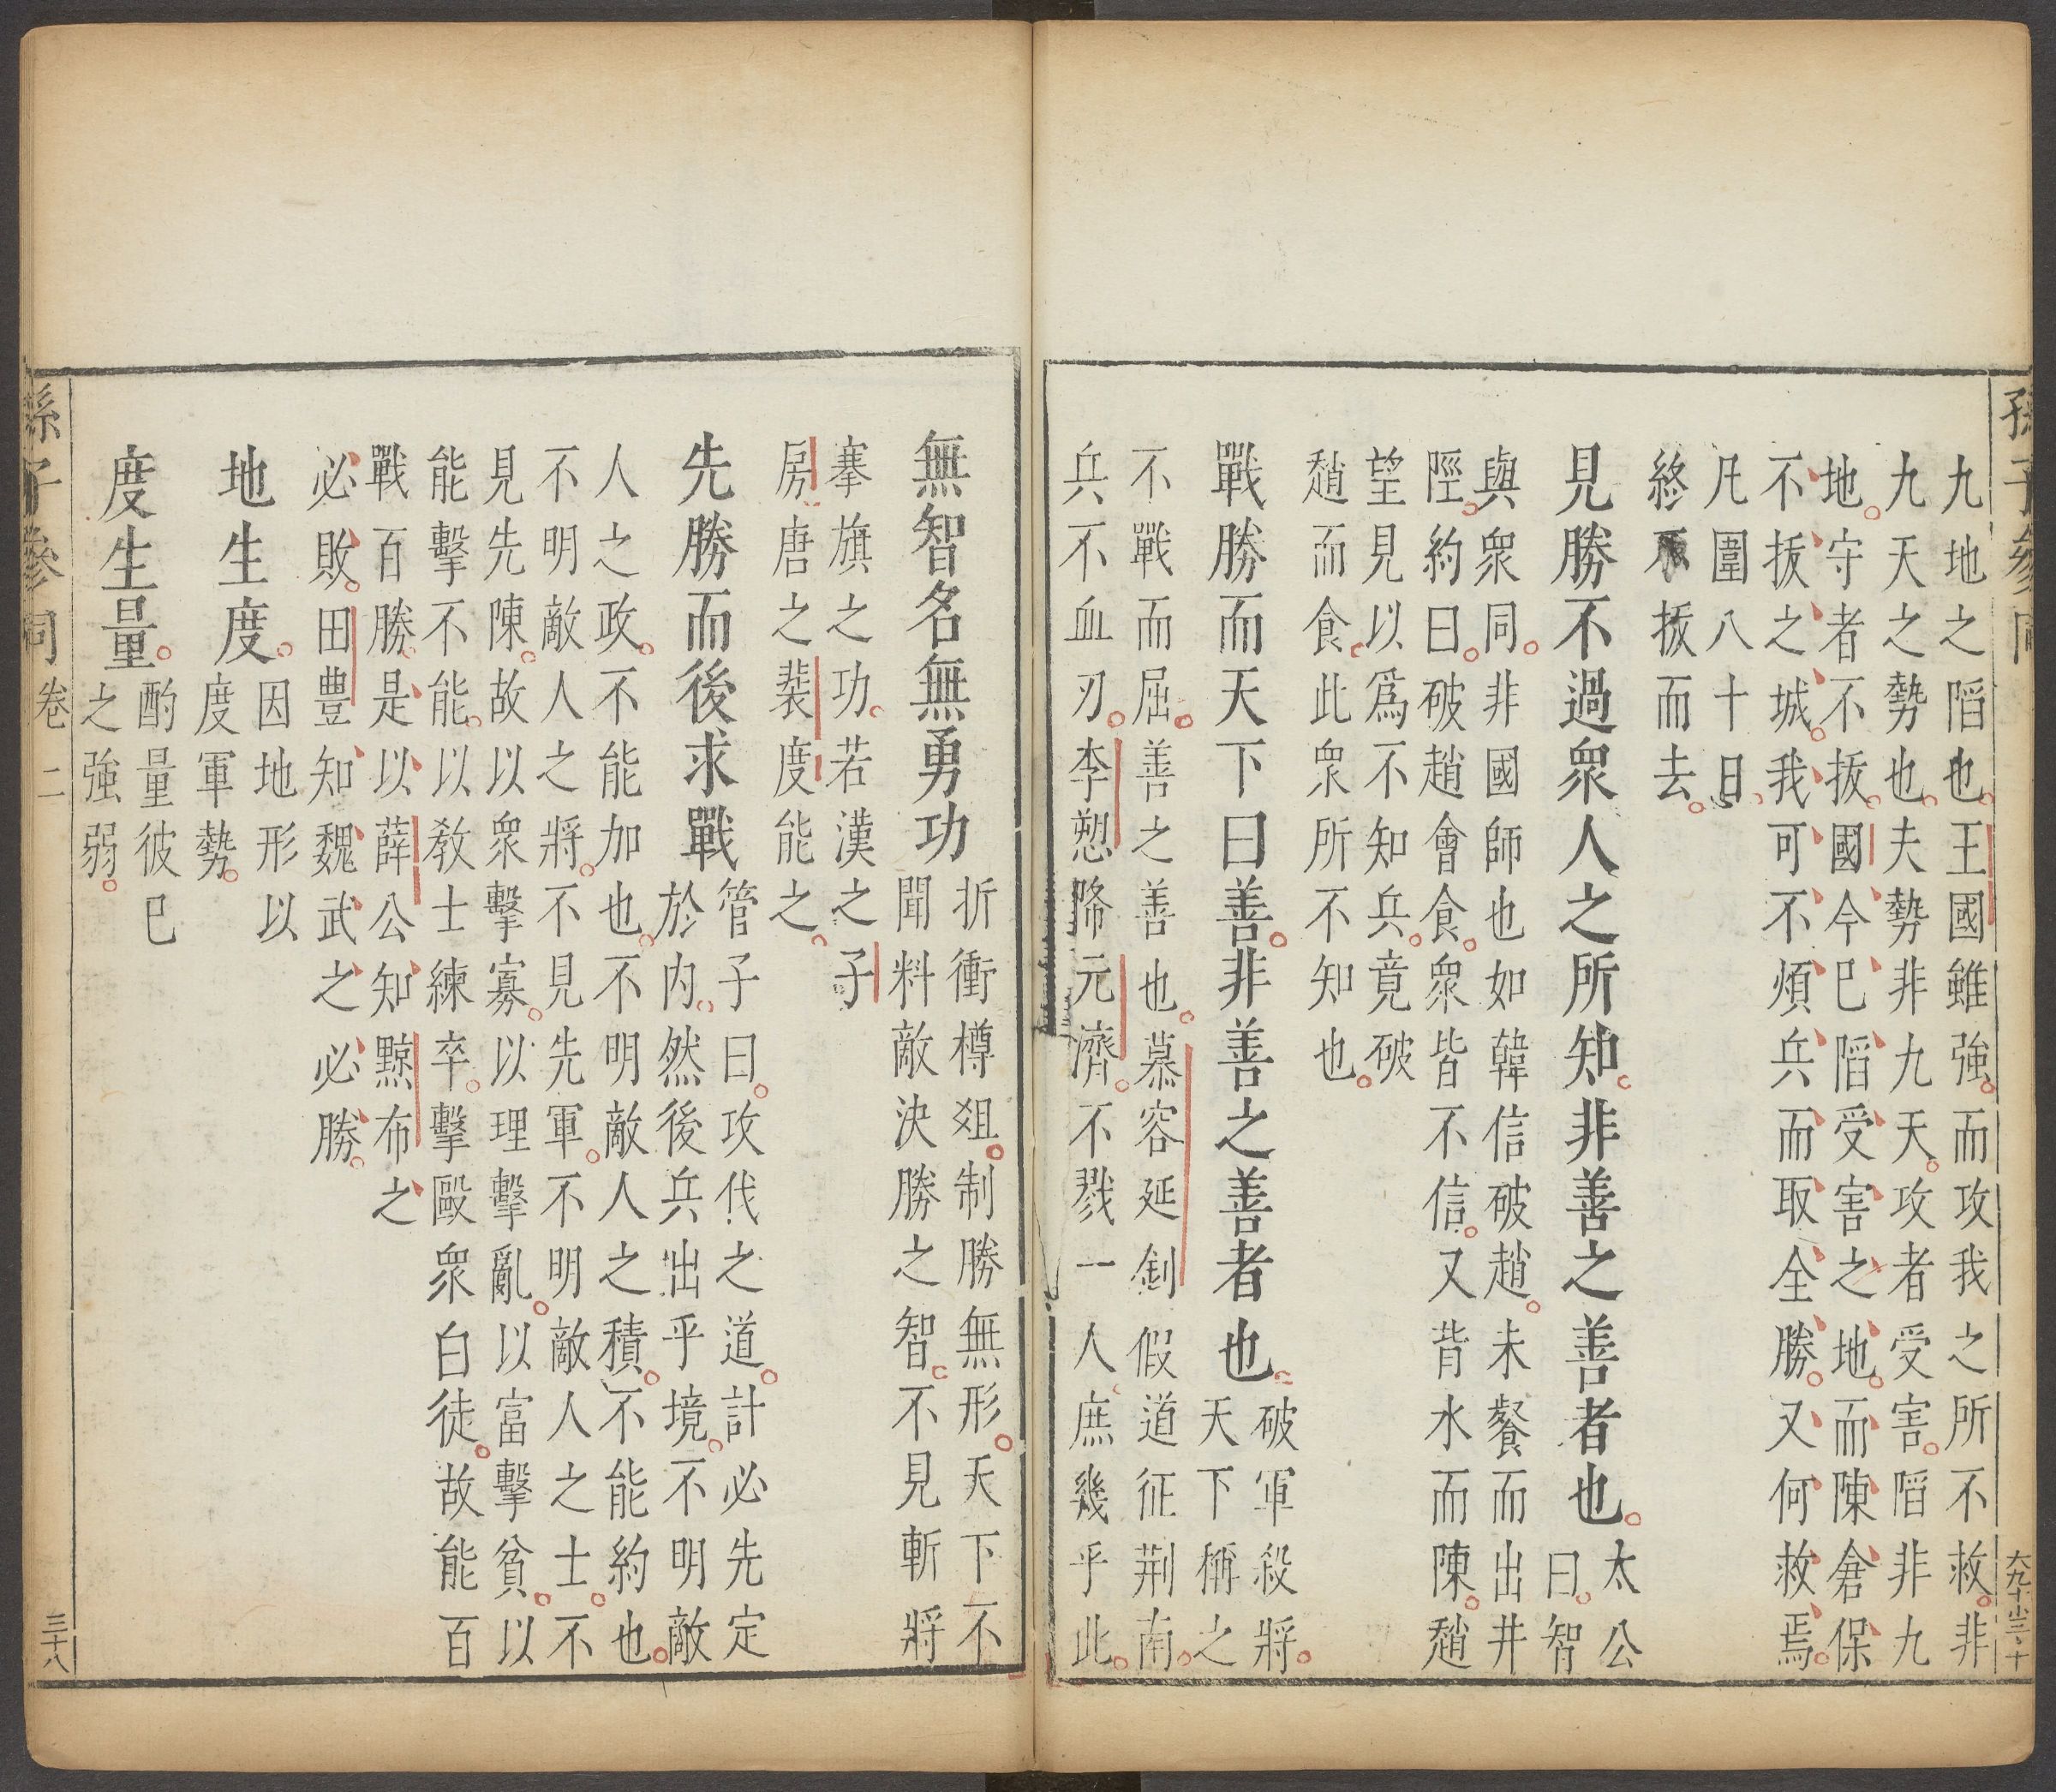 孫子參同
九地之䧟也王國雖強而攻我之所不救非
九天之勢也夫勢非九天攻者受害䧟非九
地守者不拔國今巳䧟受害之地而陳倉保
不拔之城我可不煩兵而取全勝又何救焉
凡圍八十日
終不拔而去
見勝不過衆人之所知非善之善者也太公
曰智
與衆同非國師也如韓信破趙未餐而出井
陘約曰破趙會食衆皆不信又背水而陳趙
望見以爲不知兵竟破
趙而食此衆所不知也
戰勝而天下曰善非善之善者也破軍殺將
天下稱之
不戰而屈善之善也慕容延釗假道征荆南
兵不血刃李愬降元濟不戮一人庶幾乎此
無智名無勇功折衝樽爼制勝無形天下不
聞料敵決勝之智不見斬將
搴旗之功若漢之子
房唐之裴度能之
先勝而後求戰管子曰攻伐之道計必先定
於内然後兵出乎境不明敵
人之政不能加也不明敵人之積不能約也
不明敵人之將不見先軍不明敵人之士不
見先陳故以衆擊寡以理擊亂以富擊貧以
能擊不能以教士練卒擊毆衆白徒故能百
戰百勝是以薛公知黥布之
必敗田豊知魏武之必勝
地生度因地形以
度軍勢
度生量酌量彼巳
之強弱
孫子參同 卷二 三十八